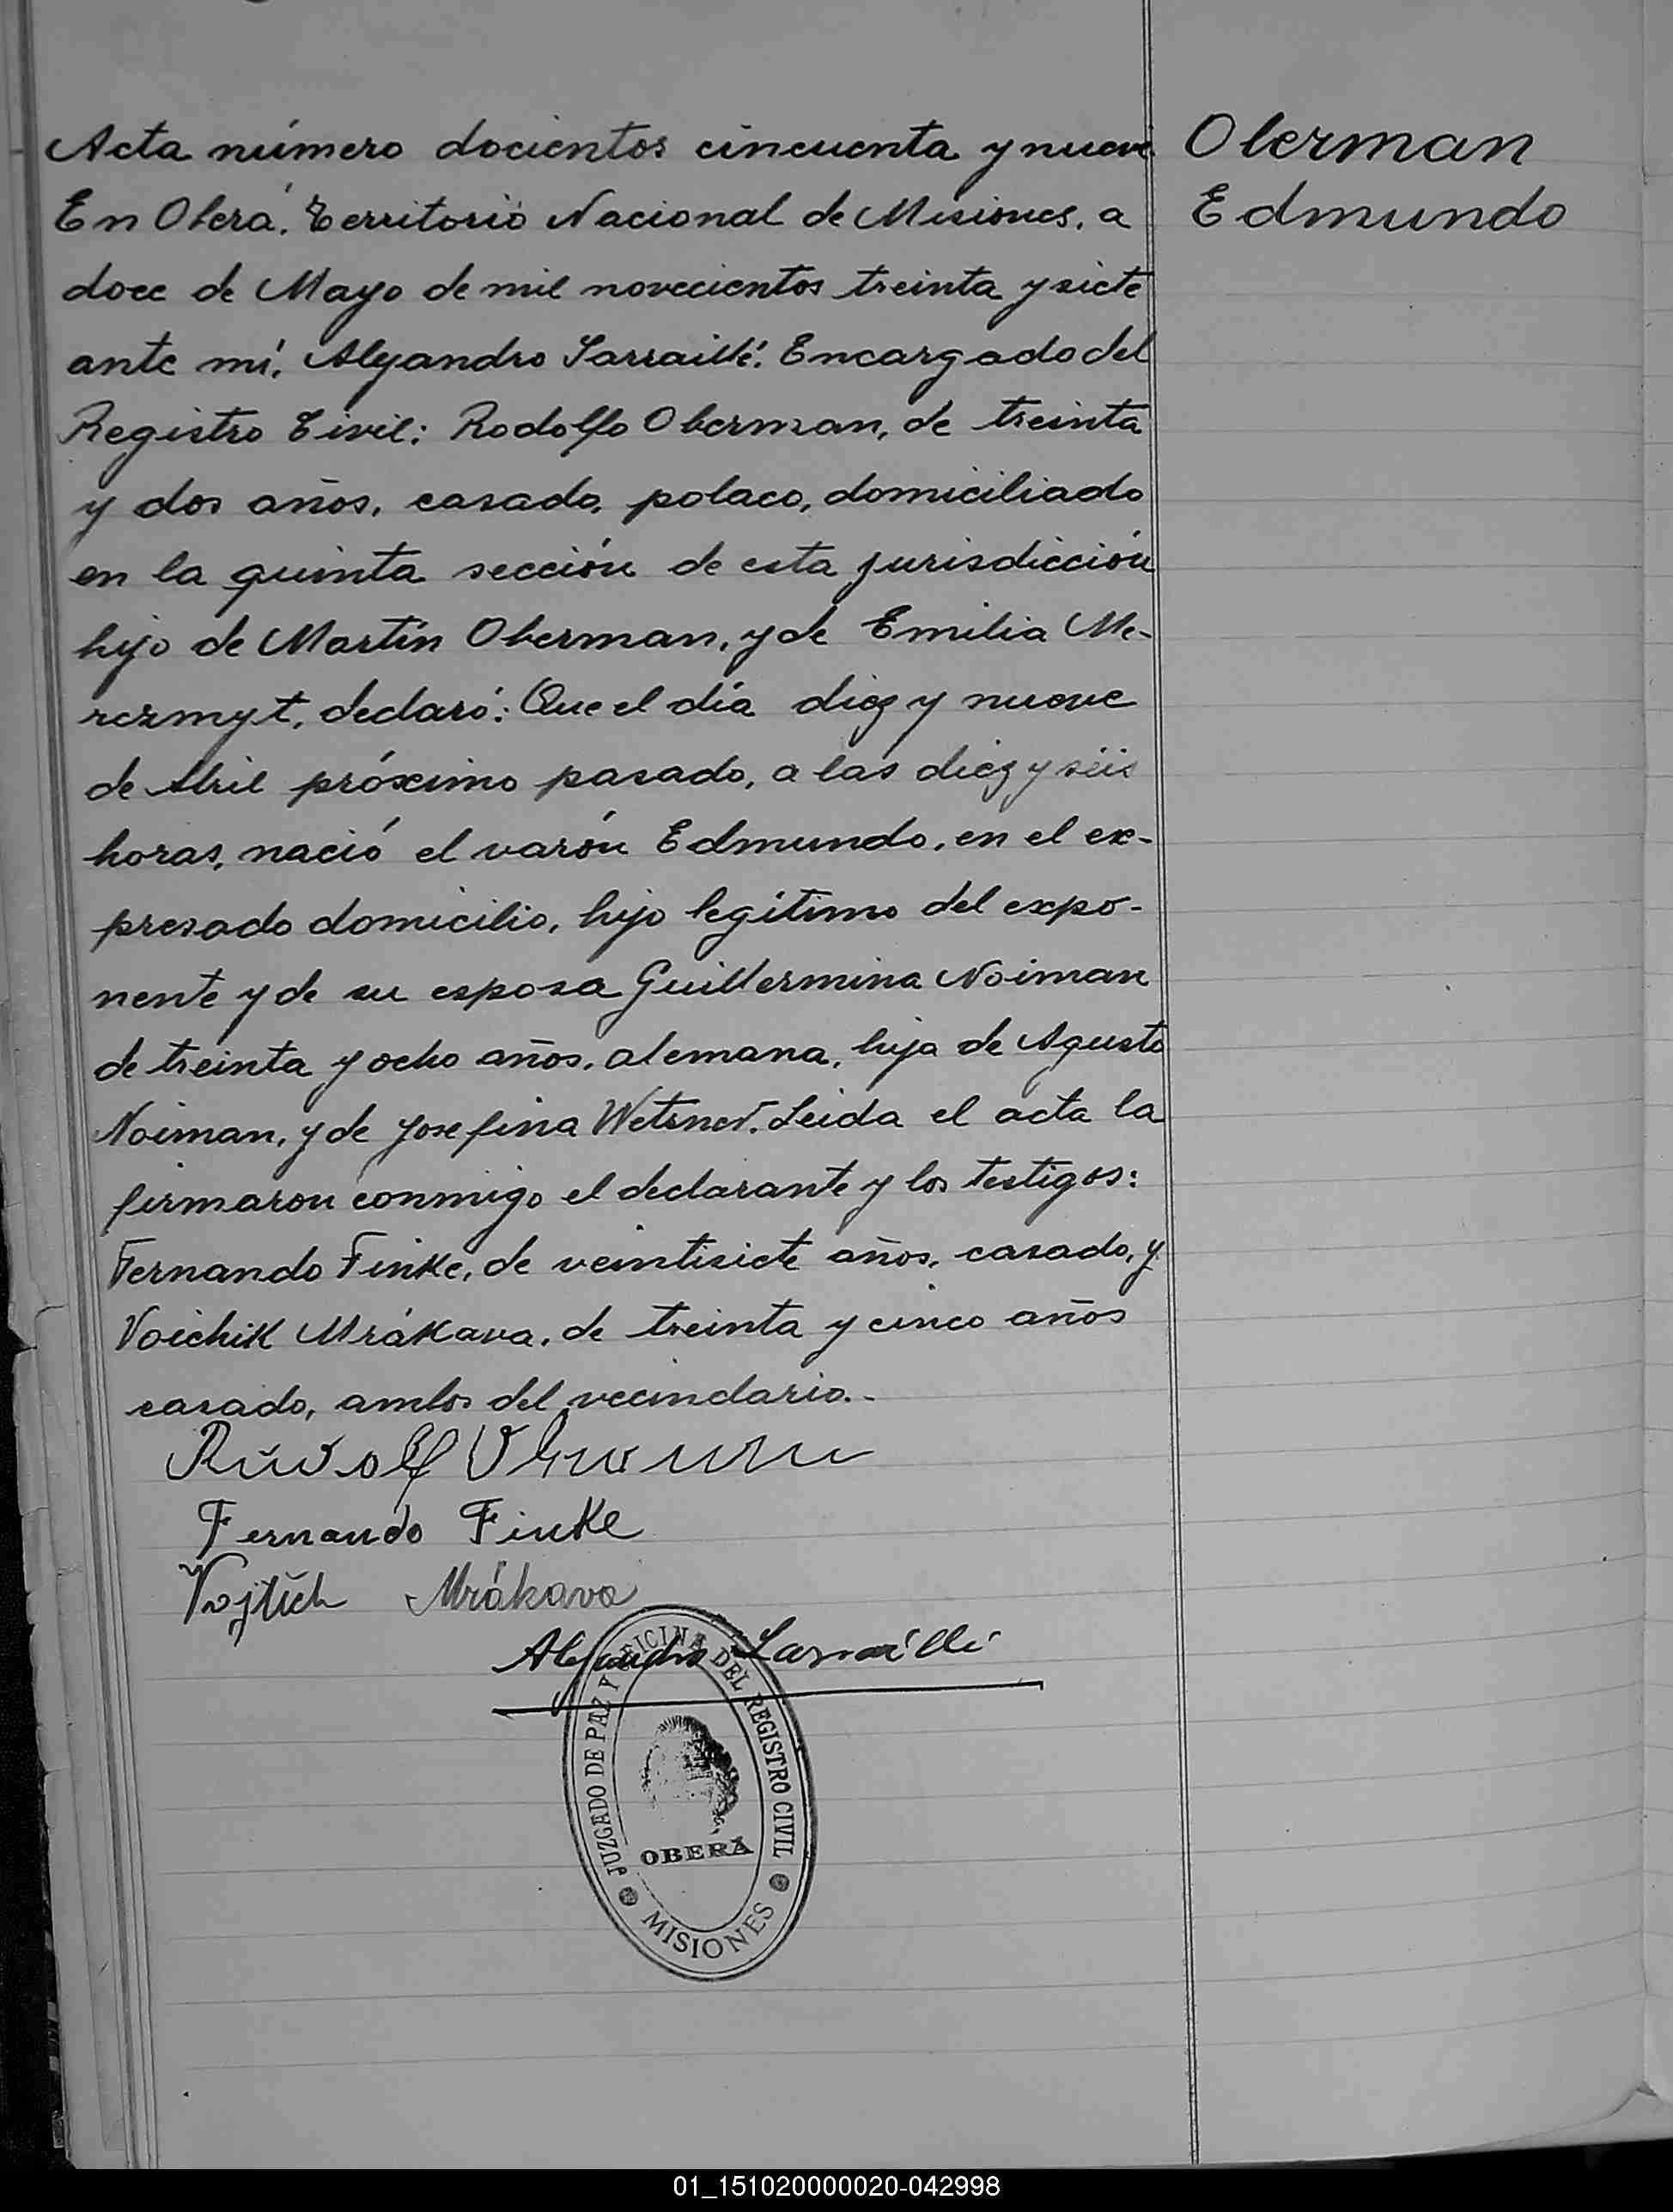 Acta número docientos cincuenta y nueve
En Oberá, Territorio Nacional de Misiones, a
doce de Mayo de mil novecientos treinta y siete
ante mí, Alejandro Sarraillé, Encargado del
Registro Civil: Rodolfo Oberman, de treinta
y dos años, casado, polaco, domiciliado
en la quinta sección de esta jurisdicción
hijo de Martín Oberman, y de Emilia Me-
rezmyt, declaró: Que el día diez y nueve
de Abril próximo pasado, a las diez y séis
horas, nació el varón Edmundo, en el ex-
presado domicilio, hijo legítimo del expo-
nente y de su esposa Guillermina Noiman
de treinta y ocho años, alemana, hija de Agusto
Noiman, y de Josefina Wetzner. Leida el acta la
firmaron conmigo el declarante y los testigos:
Fernando Finke, de veintisiete años, casado, y
Voichik Mrákava, de treinta y cinco años
casado, ambos del vecindario.-
Oberman
Edmundo
Rudolf Obermann
Fernando Finke
Vojtěch Mrákava
Alejandro Sarraillé
JUZGADO DE PAZ Y OFICINA DEL REGISTRO CIVIL
OBERÁ
MISIONES
01_151020000020-042998